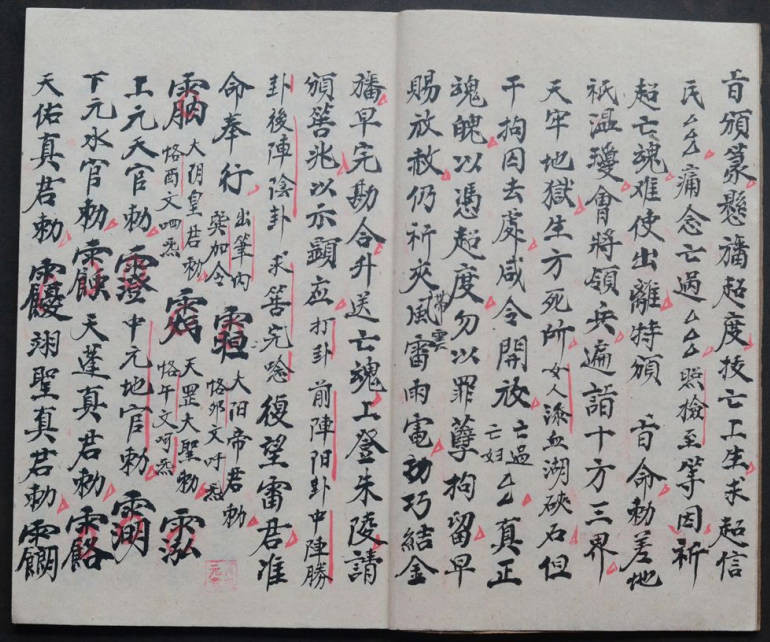 旨頒篆懸旛超度技亡上生求超信
民厶厶痛念亡過厶厶照檢至等因祈
超亡魂难使出離特頒旨命勅差地
祇温瓊會將領兵遍詣十方三界
天牢地獄生方死所女人添血湖硤石但
干拘囚去處咸令開放亡過亡妇厶真正
魂魄以憑超度勿以罪孽拘留早
賜放赦仍祈夾風帶雲雷雨電劝巧結金
旛早完勘合升送亡魂上登朱陵請
頒筶兆以示顕应打卦前陣阳卦中陣勝
卦後陣陰卦求筶完唸復望雷君准
命奉行出筆内加令大阳帝君勅恪夘文呼炁
大阴皇君勅恪酉文呬炁天罡大聖勅恪午文呵炁
上元天官勅中元地官勅
下元水官勅天蓬真君勅
天佑真君勅翊聖真君勅